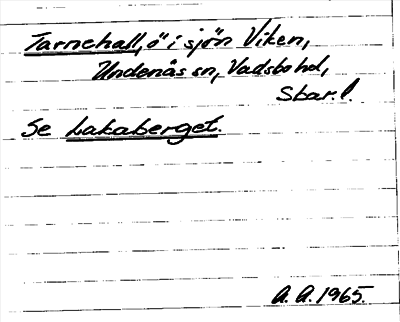 Tarnehall, ö i sjön Viken,
Undenäs sn, Vadsbo hd,
Skar. l.
Se Lakaberget.
A. A. 1965.